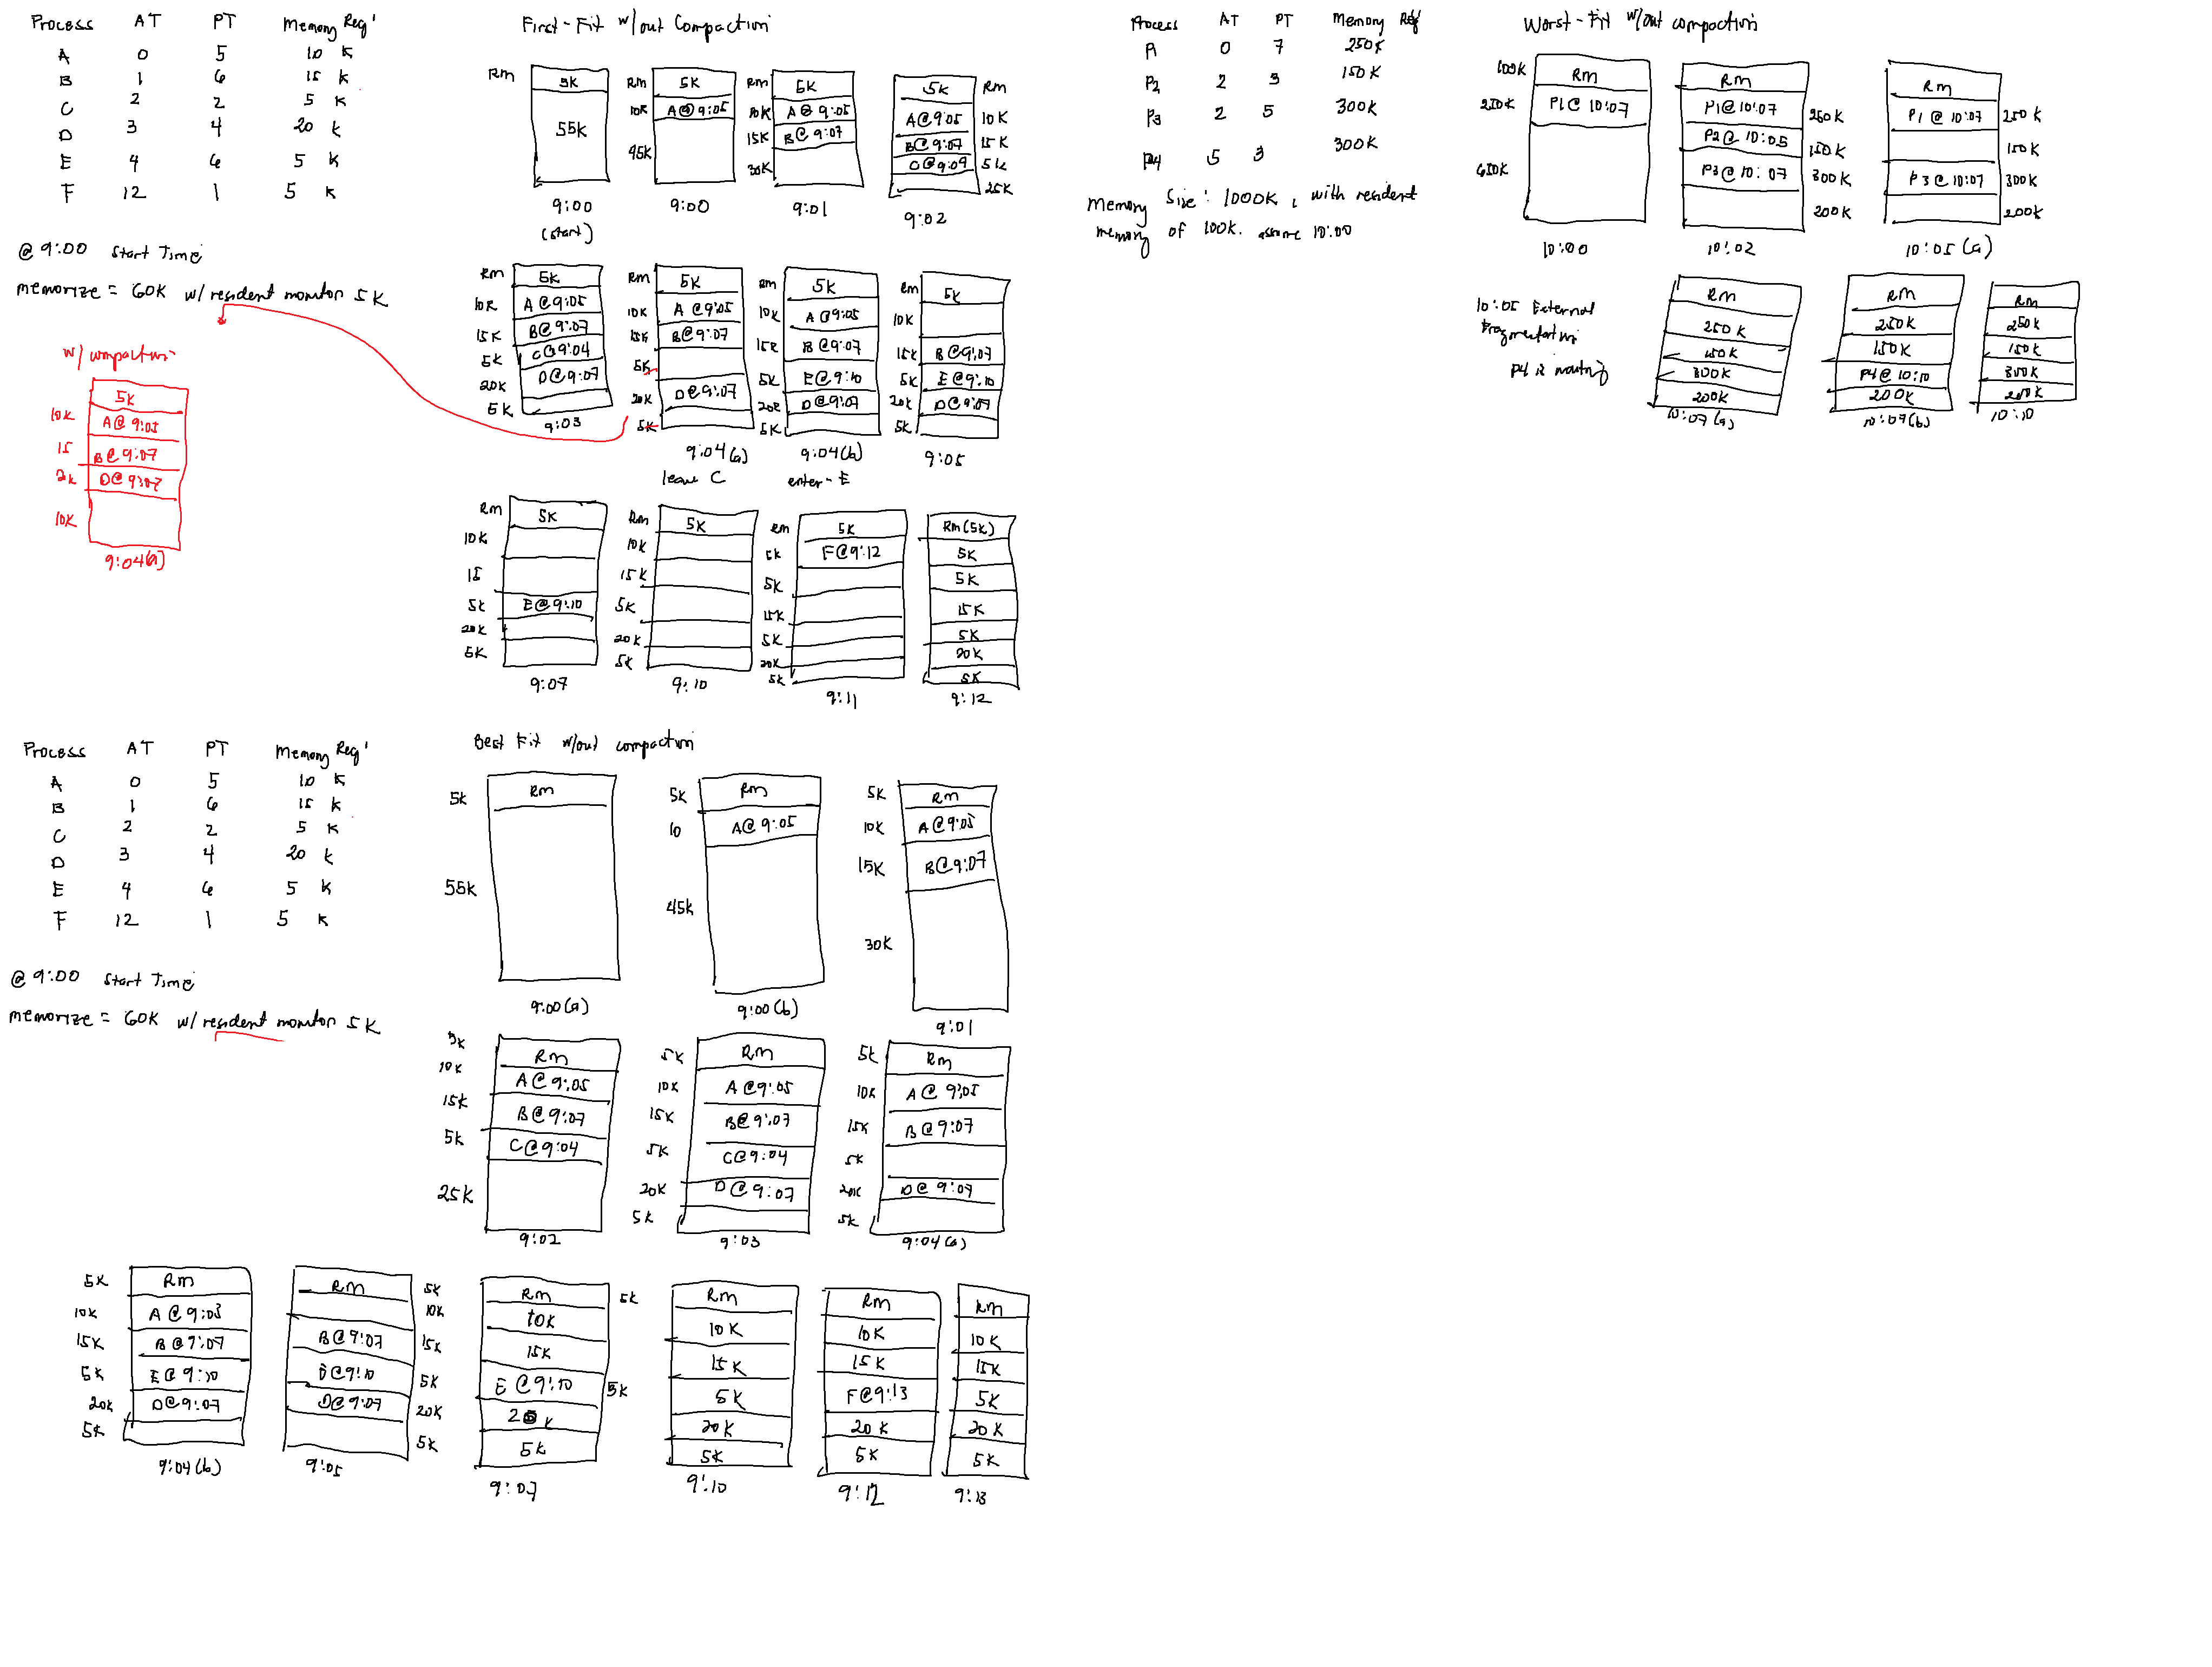 Process AT PT Memory Req'
A 0 5 10 K
B 1 6 15 K
C 2 2 5 K
D 3 4 20 K
E 4 6 5 K
F 12 1 5 K
@ 9:00 Start Time
memorize = 60K w/ resident monitor 5K
w/ compaction
5K
10K A@9:05
15 B@9:07
2K D@9:07
10K
9:04(a)
First-Fit w/out Compaction
Rm 5K
55K
9:00
(start)
Rm 5K
10K A@9:05
45K
9:00
Rm 5K
10K A@9:05
15K B@9:07
30K
9:01
5K Rm
A@9:05 10K
B@9:07 15K
C@9:04 5K
25K
9:02
Rm 5K
10K A@9:05
15K B@9:07
5K C@9:04
20K D@9:07
5K
9:03
Rm 5K
10K A@9:05
15K B@9:07
5K
20K D@9:07
5K
9:04(a)
leave C
Rm 5K
10K A@9:05
15K B@9:07
5K E@9:10
20K D@9:07
5K
9:04(b)
enter-E
Rm 5K
10K
15K B@9:07
5K E@9:10
20K D@9:07
5K
9:05
Rm 5K
10K
15
5K E@9:10
20K
5K
9:07
Rm 5K
10K
15K
5K
20K
5K
9:10
Rm 5K
5K F@9:12
5K
15K
5K
20K
5K
9:11
Rm(5K)
5K
5K
15K
5K
20K
5K
9:12
Process AT PT Memory Req'
A 0 5 10 K
B 1 6 15 K
C 2 2 5 K
D 3 4 20 K
E 4 6 5 K
F 12 1 5 K
@ 9:00 Start Time
memorize = 60K w/ resident monitor 5K
Best Fit w/out compaction
5K Rm
55K
9:00(a)
5K Rm
10 A@9:05
45K
9:00(b)
5K Rm
10K A@9:05
15K B@9:07
30K
9:01
5K Rm
10K A@9:05
15K B@9:07
5K C@9:04
25K
9:02
5K Rm
10K A@9:05
15K B@9:07
5K C@9:04
20K D@9:07
5K
9:03
5K Rm
10K A@9:05
15K B@9:07
5K
20K D@9:07
5K
9:04(a)
5K Rm
10K A@9:05
15K B@9:07
5K E@9:10
20K D@9:07
5K
9:04(b)
Rm 5K
10K
B@9:07 15K
E@9:10 5K
D@9:07 20K
5K
9:05
Rm 5K
10K
15K
E@9:10 5K
20K
5K
9:07
Rm
10K
15K
5K
20K
5K
9:10
Rm
10K
15K
F@9:13
20K
5K
9:12
Rm
10K
15K
5K
20K
5K
9:13
Process AT PT Memory Req'
P1 0 7 250K
P2 2 3 150K
P3 2 5 300K
P4 5 3 300K
Memory Size: 1000K, with resident
memory of 100K. assume 10:00
Worst-Fit w/out compaction
100K Rm
250K P1@10:07
650K
10:00
Rm
P1@10:07 250K
P2@10:05 150K
P3@10:07 300K
200K
10:02
Rm
P1@10:07 250K
150K
P3@10:07 300K
200K
10:05(a)
10:05 External
Fragmentation
P4 is waiting
Rm
250K
150K
300K
200K
10:07(a)
Rm
250K
150K
P4@10:10
200K
10:07(b)
Rm
250K
150K
300K
200K
10:10